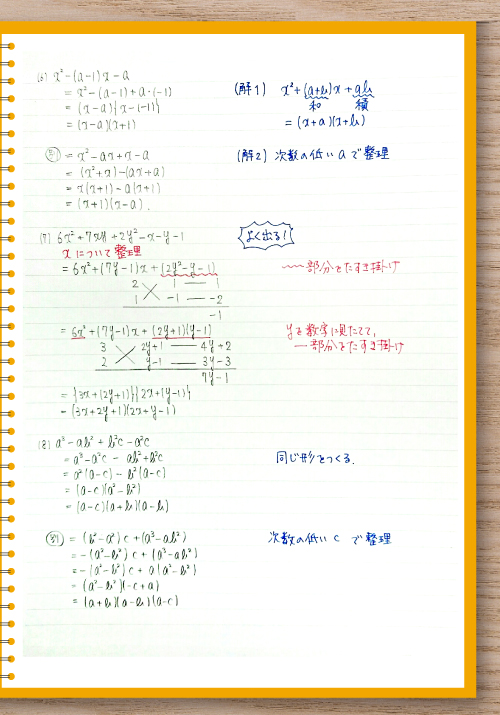 (6) x²-(a-1)x-a
= x²-(a-1)+a・(-1)
= (x-a){x-(-1)}
= (x-a)(x+1)
(解1) x²+(a+b)x+ab
和 積
= (x+a)(x+b)
別 = x²-ax+x-a
= (x²+x)-(ax+a)
= x(x+1)-a(x+1)
= (x+1)(x-a).
(解2) 次数の低いaで整理
(7) 6x²+7xy+2y²-x-y-1
よく出る!
xについて整理
= 6x²+(7y-1)x+(2y²-y-1)
部分をたすき掛け
2 1 — 1
1 -1 — -2
-1
= 6x²+(7y-1)x+(2y+1)(y-1)
yを数字に見たてて、
部分をたすき掛け
3 2y+1 — 4y+2
2 y-1 — 3y-3
7y-1
= {3x+(2y+1)}{2x+(y-1)}
= (3x+2y+1)(2x+y-1)
(8) a³-ab²+b²c-a²c
= a³-a²c-ab²+b²c
= a²(a-c)-b²(a-c)
= (a-c)(a²-b²)
= (a-c)(a+b)(a-b)
同じ形をつくる.
別 = (b²-a²)c+(a³-ab²)
= -(a²-b²)c+(a³-ab²)
= -(a²-b²)c+a(a²-b²)
= (a²-b²)(-c+a)
= (a+b)(a-b)(a-c)
次数の低いcで整理